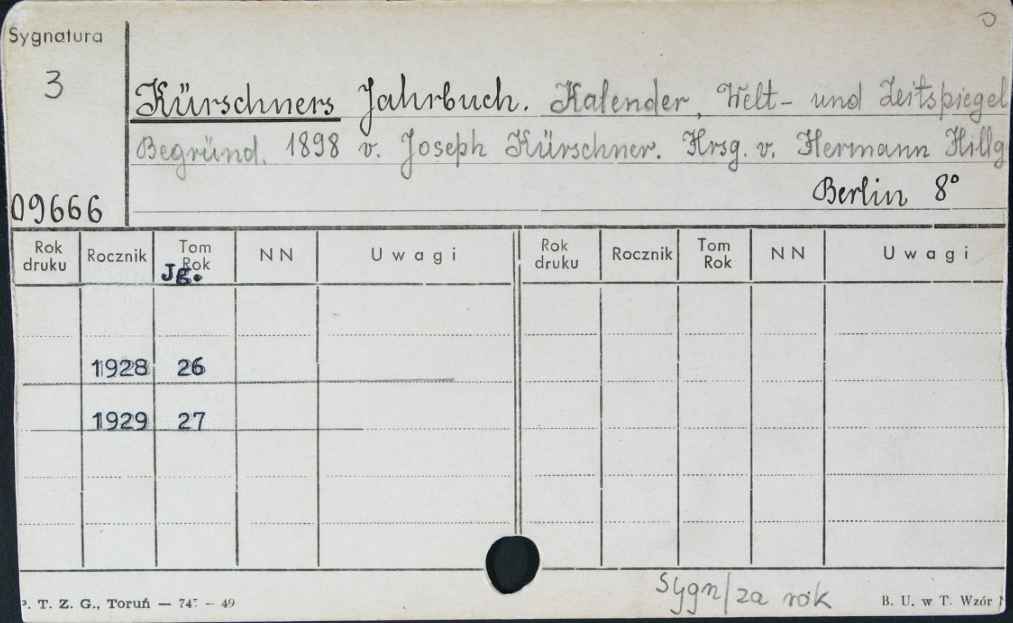 Sygnatura
3
09666
Kürschners Jahrbuch. Kalender, Welt- und Zeitspiegel
Begründ. 1898 v. Joseph Kürschner. Hrsg. v. Hermann Hillg
Berlin 8°
Rok druku Rocznik Tom Rok NN Uwagi Rok druku Rocznik Tom Rok NN Uwagi
Jg.
1928 26
1929 27
Sygn/za rok
. T. Z. G., Toruń — 74 — 49 B. U. w T. Wzór